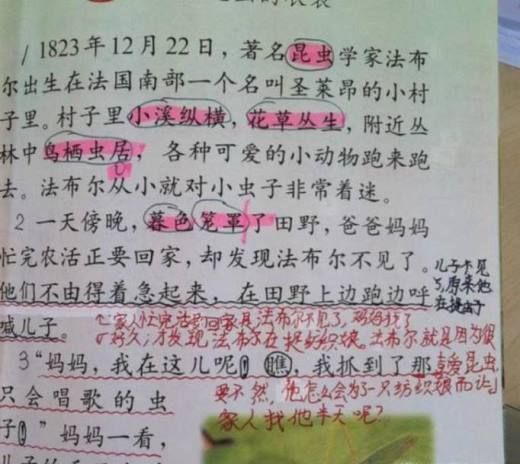 1 1823年12月22日，著名昆虫学家法布
尔出生在法国南部一个名叫圣莱昂的小村
子里。村子里小溪纵横，花草丛生，附近丛
林中鸟栖虫居，各种可爱的小动物跑来跑
去。法布尔从小就对小虫子非常着迷。
2 一天傍晚，暮色笼罩了田野，爸爸妈妈
忙完农活正要回家，却发现法布尔不见了。
儿子不见
了，原来他
在捉虫子
他们不由得着急起来，在田野上边跑边呼
喊儿子。
家人忙完活要回家具法布尔不见了，妈妈找了
好久，才发现法布尔在捉纺织娘。法布尔就是因为很
喜爱昆虫，
3“妈妈，我在这儿呢！瞧，我抓到了那
要不然，他怎么会为了一只纺织娘而让
只会唱歌的虫
家人找他半天呢？
子！”妈妈一看，